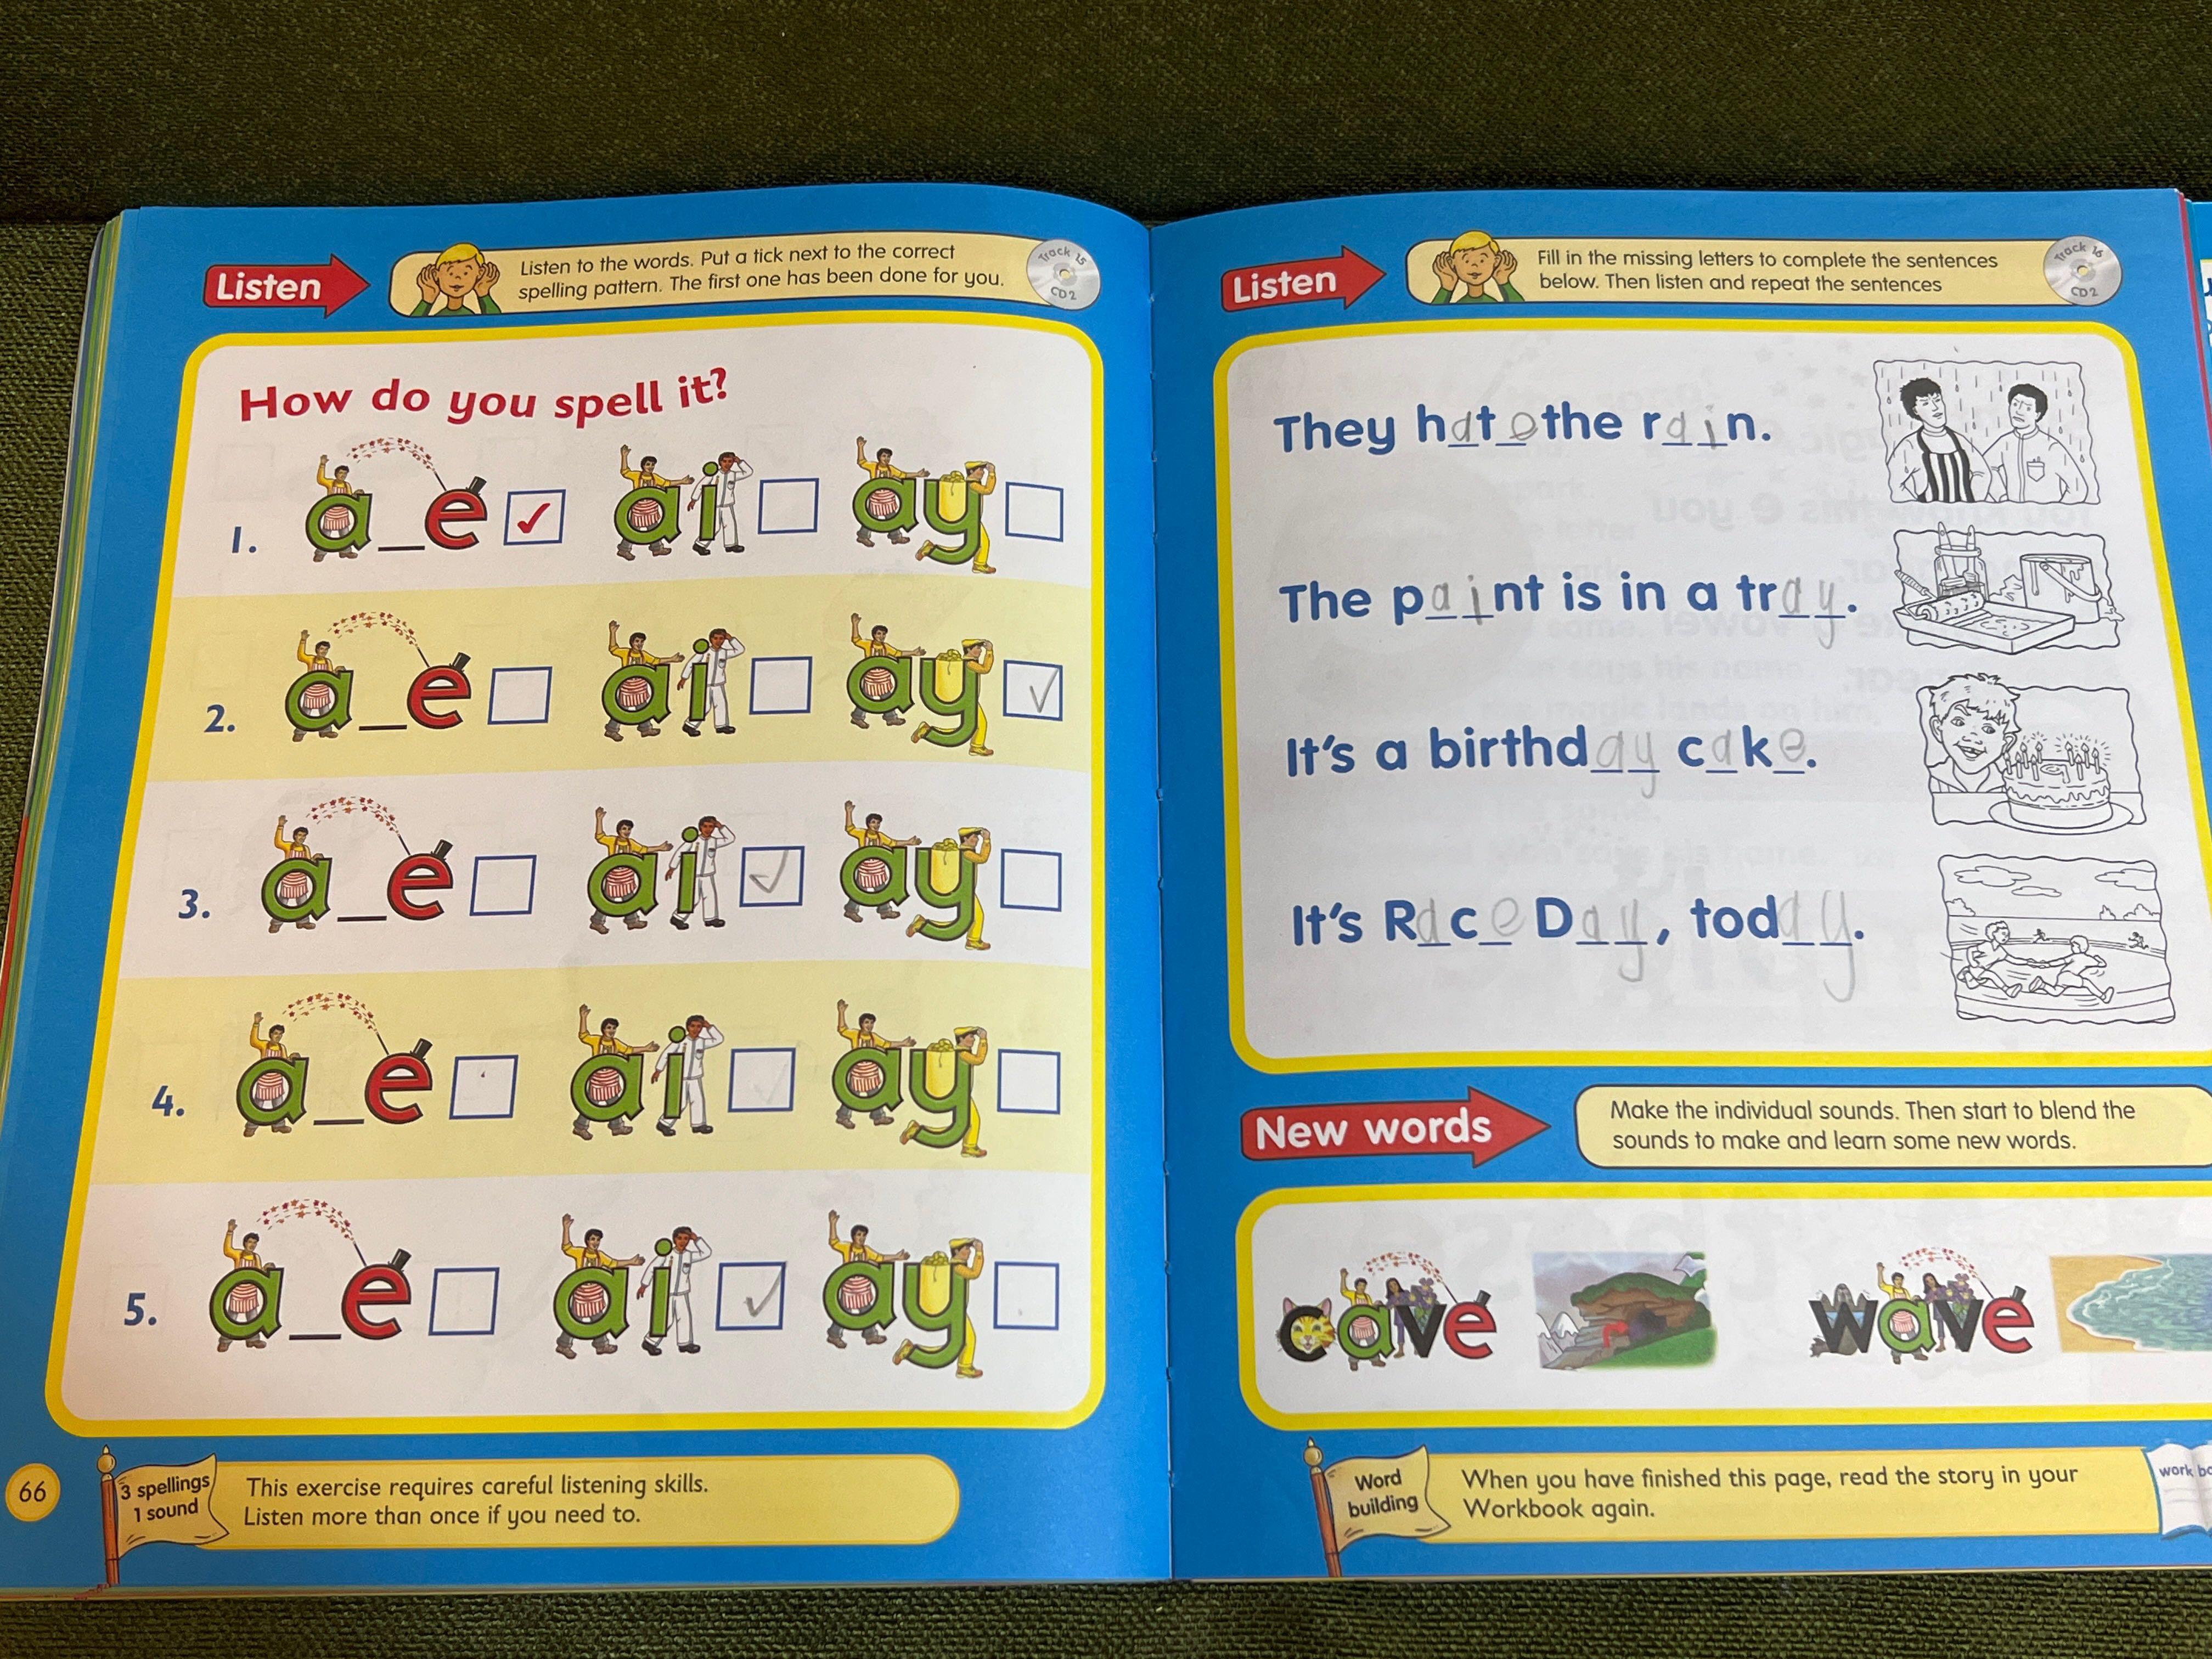 Listen
Listen to the words. Put a tick next to the correct
spelling pattern. The first one has been done for you.
Track 15
CD2
How do you spell it?
1. a_e ✓ ai ay
2. a_e ai ay ✓
3. a_e ai ✓ ay
4. a_e ai ay
5. a_e ai ✓ ay
66
3 spellings
1 sound
This exercise requires careful listening skills.
Listen more than once if you need to.
Listen
Fill in the missing letters to complete the sentences
below. Then listen and repeat the sentences
Track 16
CD2
They hate the rain.
The paint is in a tray.
It's a birthday cake.
It's Race Day, today.
New words
Make the individual sounds. Then start to blend the
sounds to make and learn some new words.
cave wave
Word
building
When you have finished this page, read the story in your
Workbook again.
work